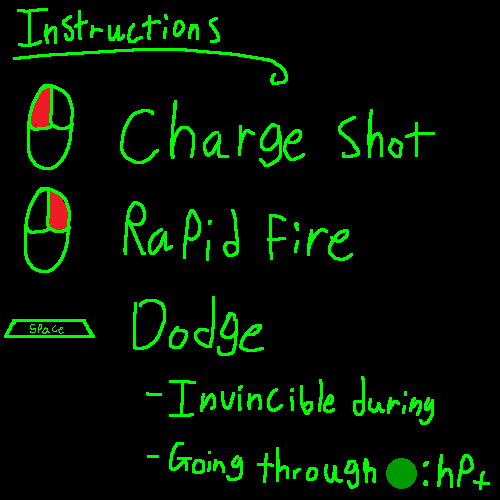 Instructions
Charge Shot
Rapid Fire
Space
Dodge
- Invincible during
- Going through : hP+